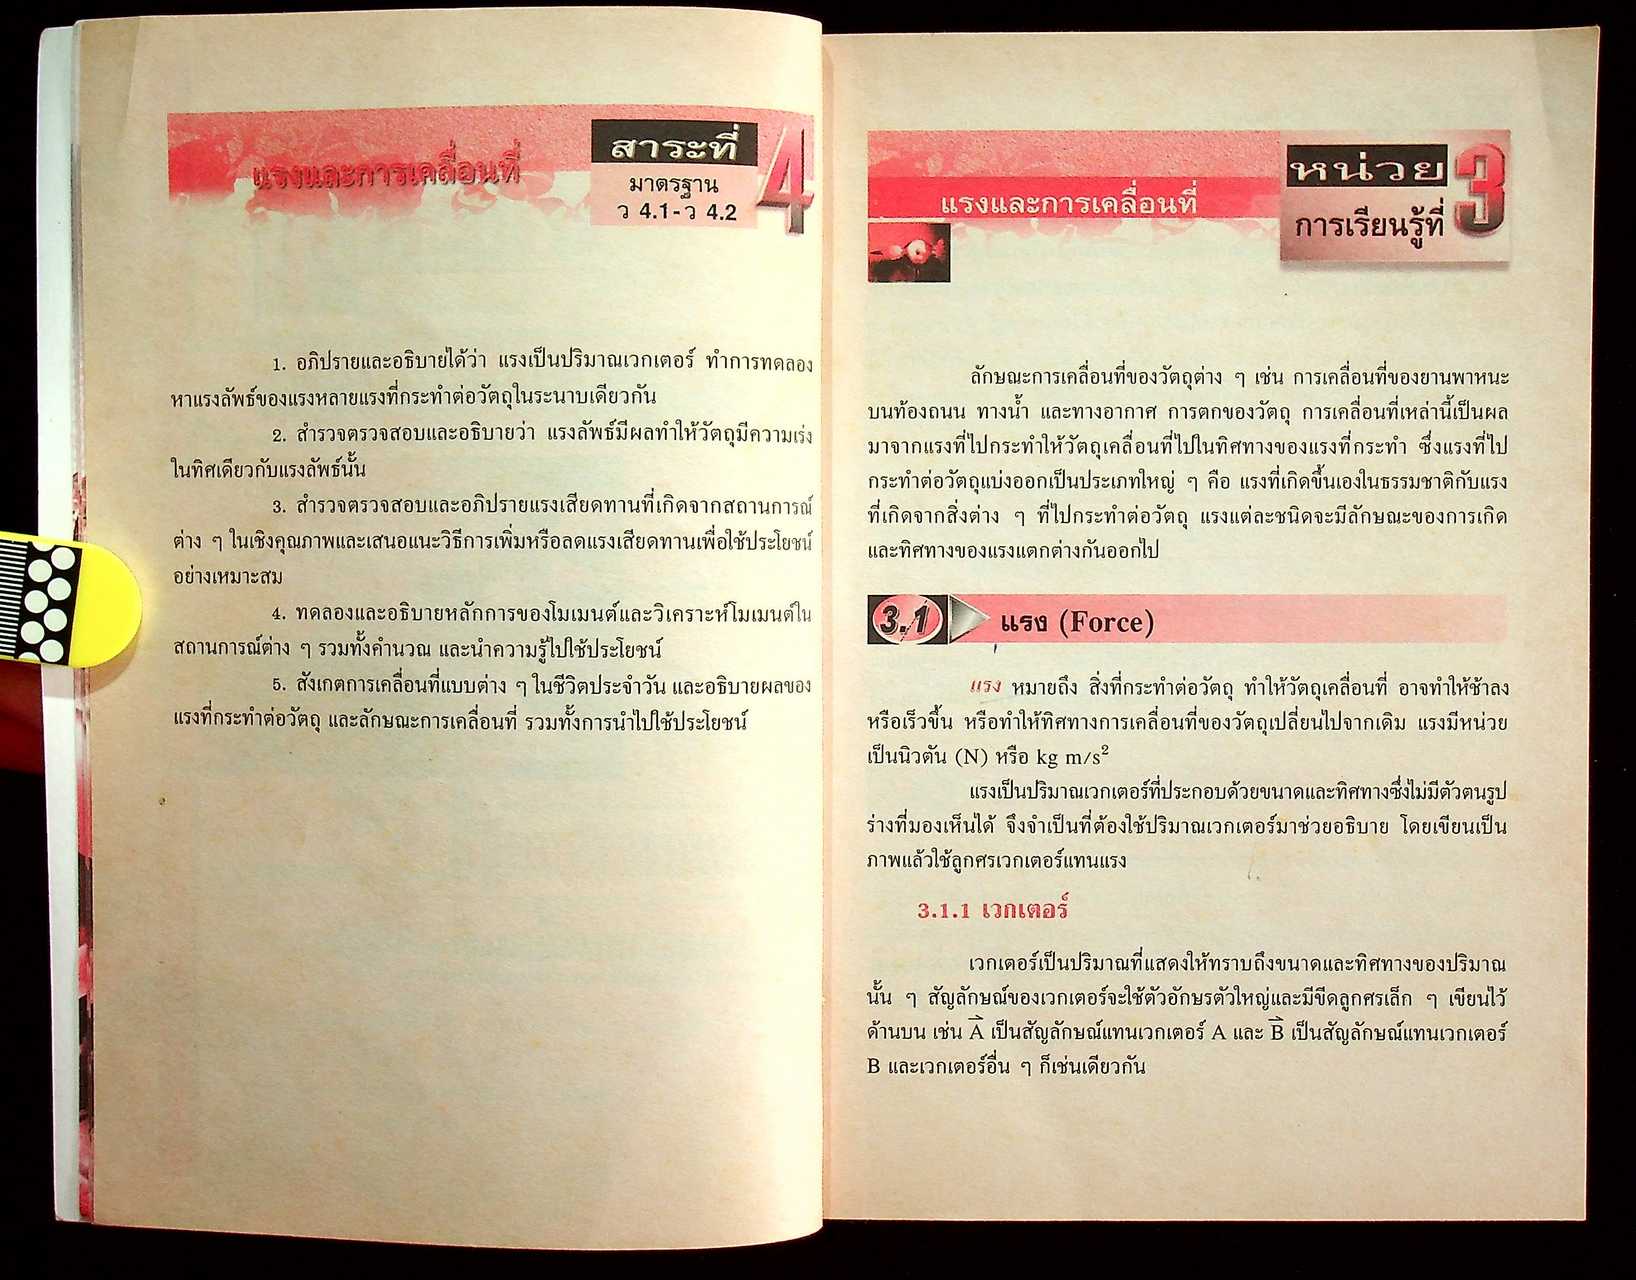 แรงและการเคลื่อนที่
สาระที่ 4
มาตรฐาน
ว 4.1-ว 4.2
1. อภิปรายและอธิบายได้ว่า แรงเป็นปริมาณเวกเตอร์ ทำการทดลอง
หาแรงลัพธ์ของแรงหลายแรงที่กระทำต่อวัตถุในระนาบเดียวกัน
2. สำรวจตรวจสอบและอธิบายว่า แรงลัพธ์มีผลทำให้วัตถุมีความเร่ง
ในทิศเดียวกับแรงลัพธ์นั้น
3. สำรวจตรวจสอบและอภิปรายแรงเสียดทานที่เกิดจากสถานการณ์
ต่าง ๆ ในเชิงคุณภาพและเสนอแนะวิธีการเพิ่มหรือลดแรงเสียดทานเพื่อใช้ประโยชน์
อย่างเหมาะสม
4. ทดลองและอธิบายหลักการของโมเมนต์และวิเคราะห์โมเมนต์ใน
สถานการณ์ต่าง ๆ รวมทั้งคำนวณ และนำความรู้ไปใช้ประโยชน์
5. สังเกตการเคลื่อนที่แบบต่าง ๆ ในชีวิตประจำวัน และอธิบายผลของ
แรงที่กระทำต่อวัตถุ และลักษณะการเคลื่อนที่ รวมทั้งการนำไปใช้ประโยชน์
แรงและการเคลื่อนที่
หน่วย 3
การเรียนรู้ที่
ลักษณะการเคลื่อนที่ของวัตถุต่าง ๆ เช่น การเคลื่อนที่ของยานพาหนะ
บนท้องถนน ทางน้ำ และทางอากาศ การตกของวัตถุ การเคลื่อนที่เหล่านี้เป็นผล
มาจากแรงที่ไปกระทำให้วัตถุเคลื่อนที่ไปในทิศทางของแรงที่กระทำ ซึ่งแรงที่ไป
กระทำต่อวัตถุแบ่งออกเป็นประเภทใหญ่ ๆ คือ แรงที่เกิดขึ้นเองในธรรมชาติกับแรง
ที่เกิดจากสิ่งต่าง ๆ ที่ไปกระทำต่อวัตถุ แรงแต่ละชนิดจะมีลักษณะของการเกิด
และทิศทางของแรงแตกต่างกันออกไป
3.1 แรง (Force)
แรง หมายถึง สิ่งที่กระทำต่อวัตถุ ทำให้วัตถุเคลื่อนที่ อาจทำให้ช้าลง
หรือเร็วขึ้น หรือทำให้ทิศทางการเคลื่อนที่ของวัตถุเปลี่ยนไปจากเดิม แรงมีหน่วย
เป็นนิวตัน (N) หรือ kg m/s²
แรงเป็นปริมาณเวกเตอร์ที่ประกอบด้วยขนาดและทิศทางซึ่งไม่มีตัวตนรูป
ร่างที่มองเห็นได้ จึงจำเป็นที่ต้องใช้ปริมาณเวกเตอร์มาช่วยอธิบาย โดยเขียนเป็น
ภาพแล้วใช้ลูกศรเวกเตอร์แทนแรง
3.1.1 เวกเตอร์
เวกเตอร์เป็นปริมาณที่แสดงให้ทราบถึงขนาดและทิศทางของปริมาณ
นั้น ๆ สัญลักษณ์ของเวกเตอร์จะใช้ตัวอักษรตัวใหญ่และมีขีดลูกศรเล็ก ๆ เขียนไว้
ด้านบน เช่น A⃗ เป็นสัญลักษณ์แทนเวกเตอร์ A และ B⃗ เป็นสัญลักษณ์แทนเวกเตอร์
B และเวกเตอร์อื่น ๆ ก็เช่นเดียวกัน